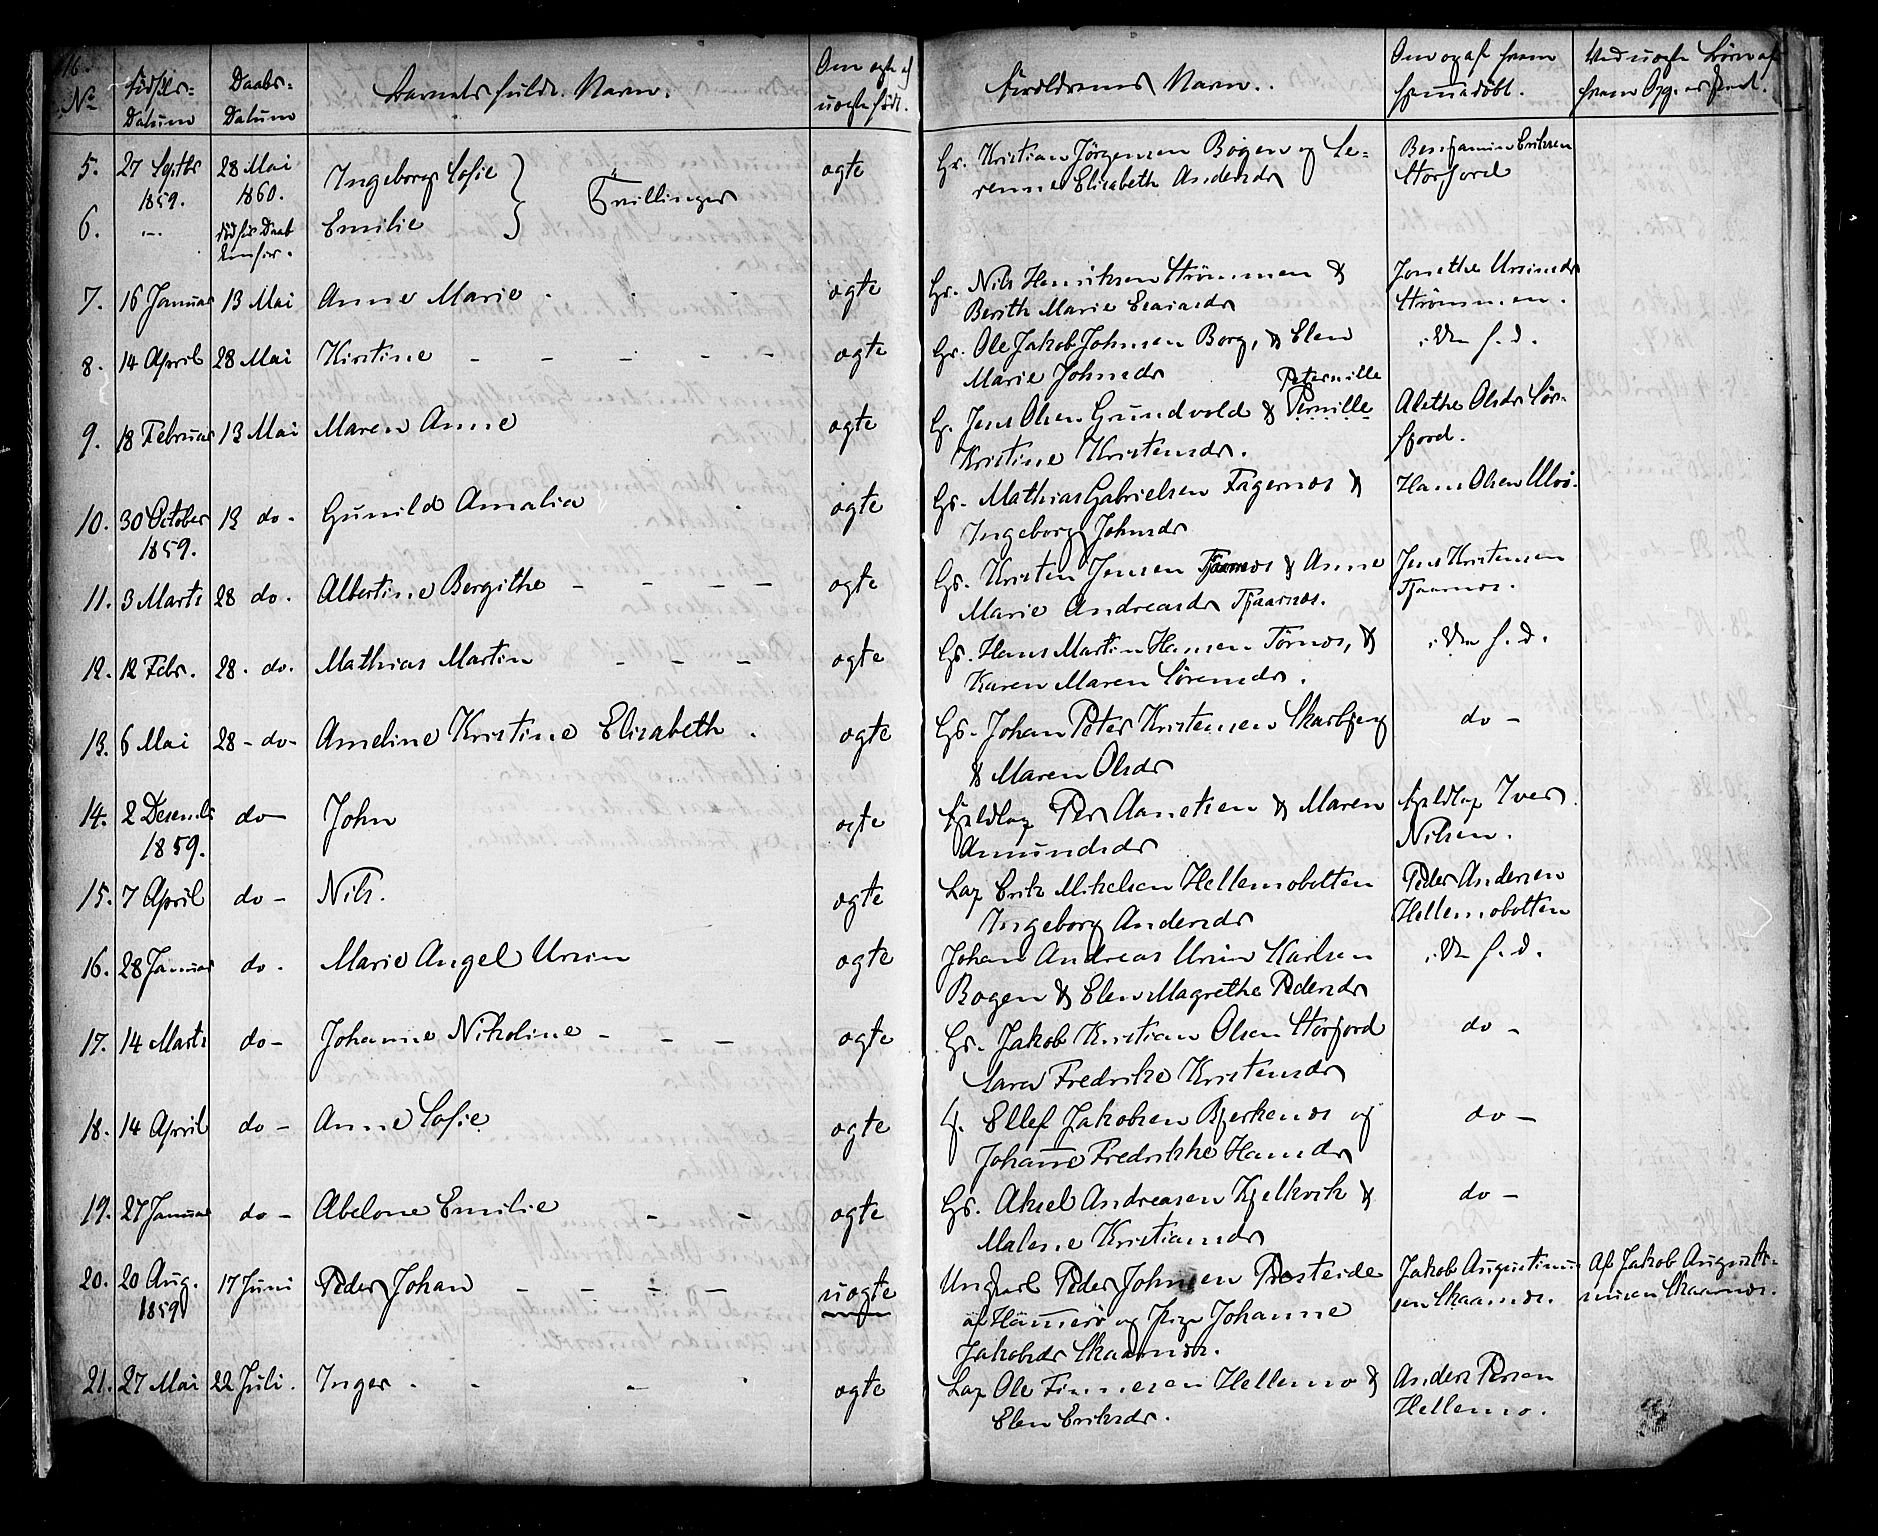 116.
No
Fødsels-
Datum
Daabs-
Datum
Barnets fulde Navn.
Om ægte el
uægte født.
Forældrenes Navn.
Om og af hvem
hjemmedøbt.
Ved uægte Børn af
hvem Opg. er skeet.
5. 27 Septbr 1859. 28 Mai 1860. Ingeborg Sofie } Tvillinger ægte Gr. Kristian Jörgensen Bogen og Se- Benjamin Eriksen
renne Elisabeth Andersdr Storfjord
6. -"- død før Daab Emilie
7. 16 Januar 13 Mai Anne Marie ægte Gr. Nils Henriksen Strömmen & Jonethe
Berith Marie Strömmen.
8. 14 April 28 Mai Kirstine - - - - - ægte Gr. Ole Jakob Johnsen Borg, & Elen i. d.
Marie Johnsdr
9. 18 Februar 13 Mai Maren Anne ægte Gr. Jens Olsen Grundvold & Pernille Alethe Olsdr Sör-
Peternille
Kristine Kristensdr. fjord.
10. 30 October 13 do. Gunild Amalia ægte Gr. Mathias Gabrielsen Fagernæs & Hans Olsen
1859. Ingeborg Johnsdr
11. 3 Marts 28 do. Albertine Bergithe - - - - ægte Gr. Kristen Jensen Tjaarnæs & Anne Jens Kristensen
Marie Andreasdr Tjaarnæs. Tjaarnæs.
12. 12 Febr. 28. do. Mathias Martin - - - ægte Gr. Hans Martin Hansen Törnæs, & i. d.
Karen Maren Sörensdr.
13. 6 Mai 28 - do - Ameline Kristine Elisabeth. ægte Gr. Johan Peter Kristensen Skarbjerg do -
& Maren Olsdr
14. 2 Desemb. do - John ægte Fjeldlap Per Aanetsen & Maren Fjeldlap Iver
1859. Amundsdr Nilsen.
15. 7 April do - Nils. ægte Lap Erik Mikelsen Hellemobotten Peder Andersen
Ingeborg Andersdr Hellemobotten
16. 28 Januar do. Marie Angel Ursin ægte Johan Andreas Ursin Karlsen i. d.
Bogen & Elen Magrethe Pedersdr
17. 14 Marts do - Johanne Nikoline - - - ægte Gr. Jakob Kristian Olsen Storfjord do -
Sara Fredrike Kristensdr
18. 14 April do - Anne Sofie ægte G. Ellef Jakobsen Bjerkenæs og do -
Johanne Fredrikke Hansdr
19. 27 Januar do - Abelone Emilie - - ægte Gr. Aksel Andreasen Kjelkvik & do -
Malene Kristiansdr
20. 20 Aug. 17 Juni Peder Johan - - - - uægte Ungkarl Peder Johnsen Presteide Jakob Augustinus- Af Jakob Augusti-
1859 af Hammerö og Pige Johanne sen Skaarnæs. nusen Skaarnæs.
Jakobsdr Skaarnæs.
21. 27 Mai 22 Juli. Inger. - - ægte Lap Ole Finnesen Hellemo & Anders Persen
Elen Eriksdr. Hellemo.